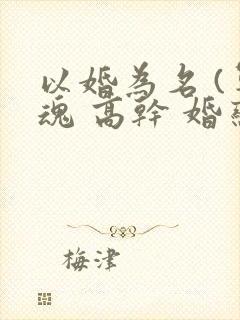 以婚為名(
魂 高幹 婚
梅津